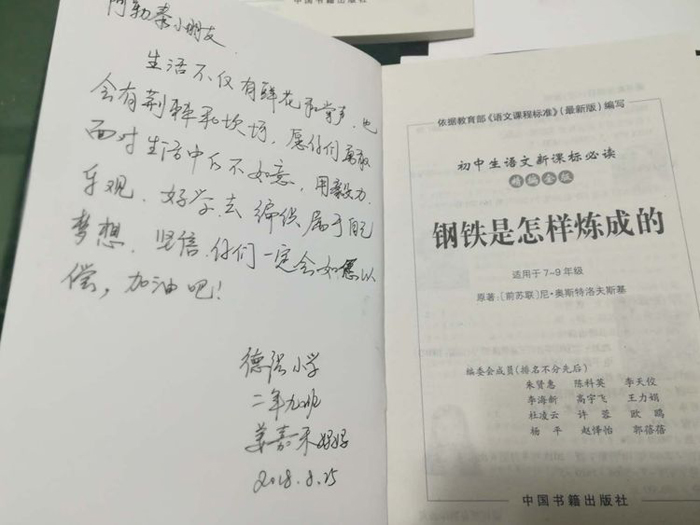 中国书籍出版社
阿勒泰小朋友
生活不仅有鲜花和掌声,也
会有荆棘和坎坷,愿你们
面对生活中的不如意,用毅力、
乐观、好学去编织属于自己
梦想,坚信你们一定会如愿以
偿,加油吧!
德强小学
二年九班
姜嘉禾妈妈
2018.8.25
依据教育部《语文课程标准》(最新版)编写
初中生语文新课标必读
精编全版
钢铁是怎样炼成的
适用于7~9年级
原著:[前苏联]尼·奥斯特洛夫斯基
编委会成员(排名不分先后)
朱贤惠 陈科英 李天佼
李海新 高宇飞 王力娟
杜凌云 许蓉 欧鸥
杨平 赵怿怡 郭蓓蓓
中国书籍出版社